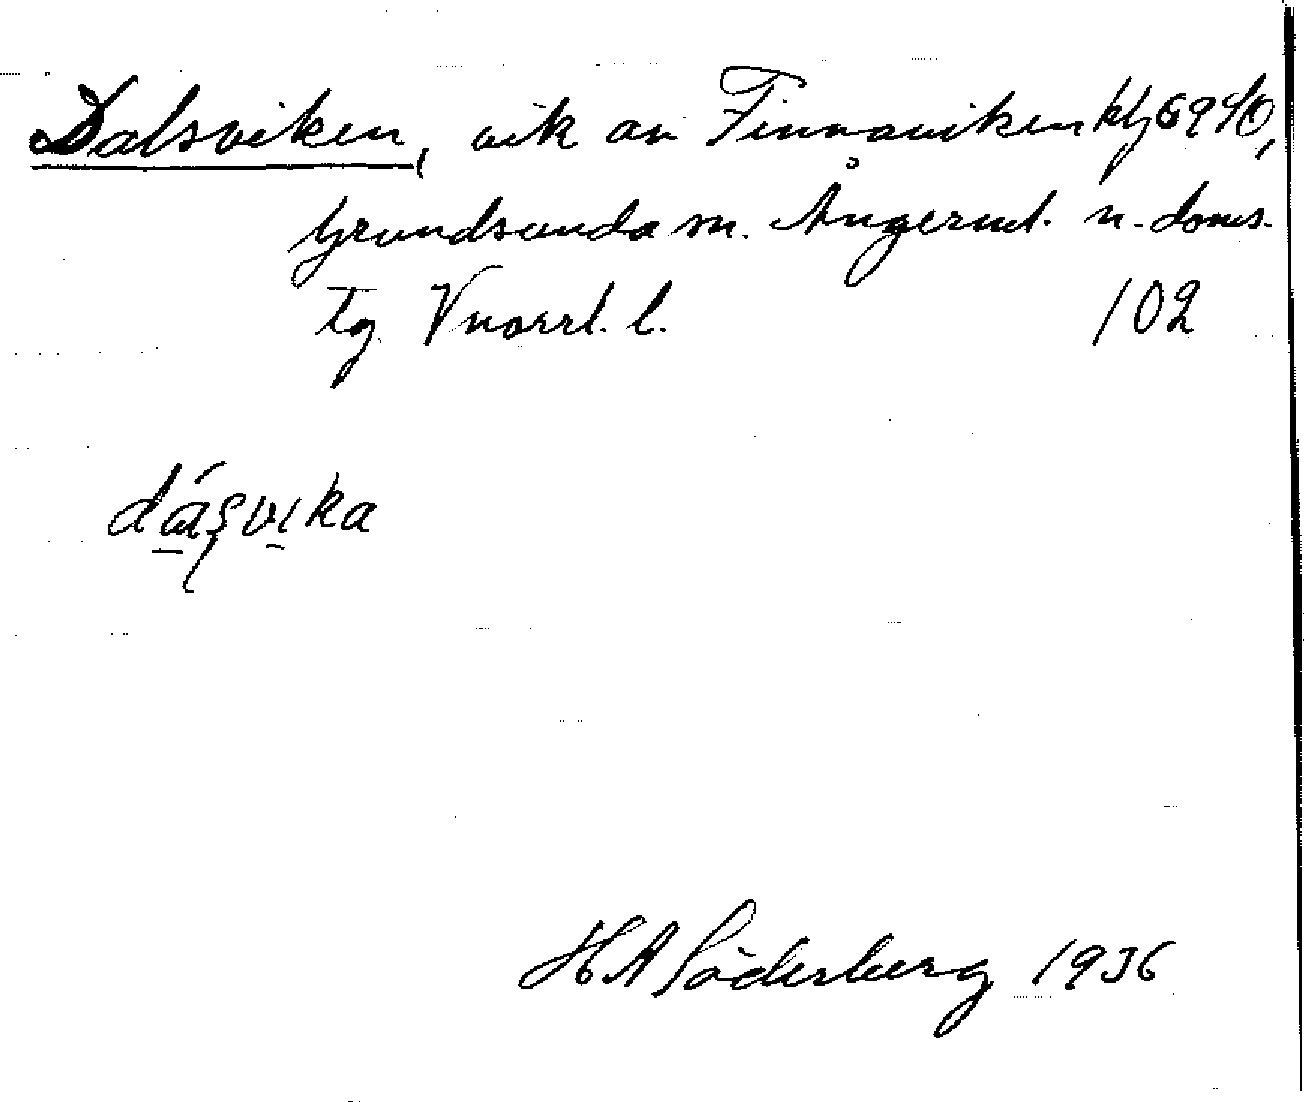 Dalsviken, vik av Finnaviken klj 6940,
Grundsunda sn. Ångerml. n. doms-
tg Vnorrl. l. 102
dásvika
HA Söderberg 1936